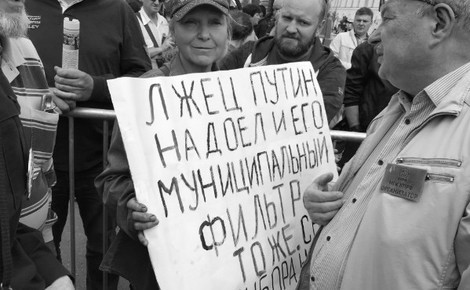 ЛЖЕЦ ПУТИН
НАДОЕЛ И ЕГО
МУНИЦИПАЛЬНЫЙ
ФИЛЬТР
ТОЖЕ